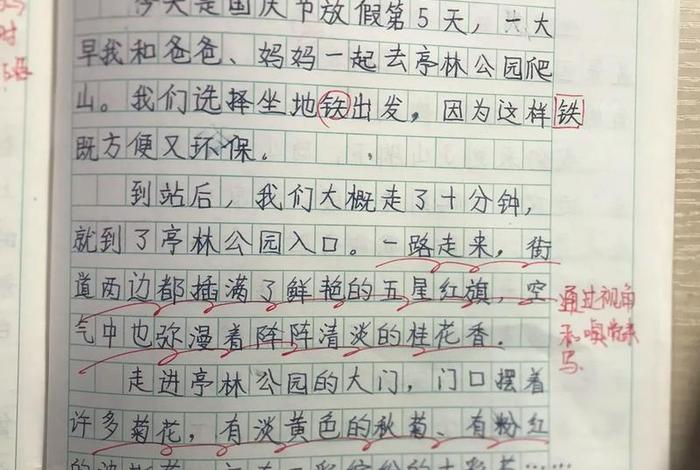 今天是国庆节放假第5天，一大
早我和爸爸、妈妈一起去亭林公园爬
山。我们选择坐地铁出发，因为这样 铁
既方便又环保。
到站后，我们大概走了十分钟，
就到了亭林公园入口。一路走来，街
道两边都插满了鲜艳的五星红旗，空
气中也弥漫着阵阵清淡的桂花香．
通过视角
和嗅觉来
写
走进亭林公园的大门，门口摆着
许多菊花，有淡黄色的秋菊、有粉红